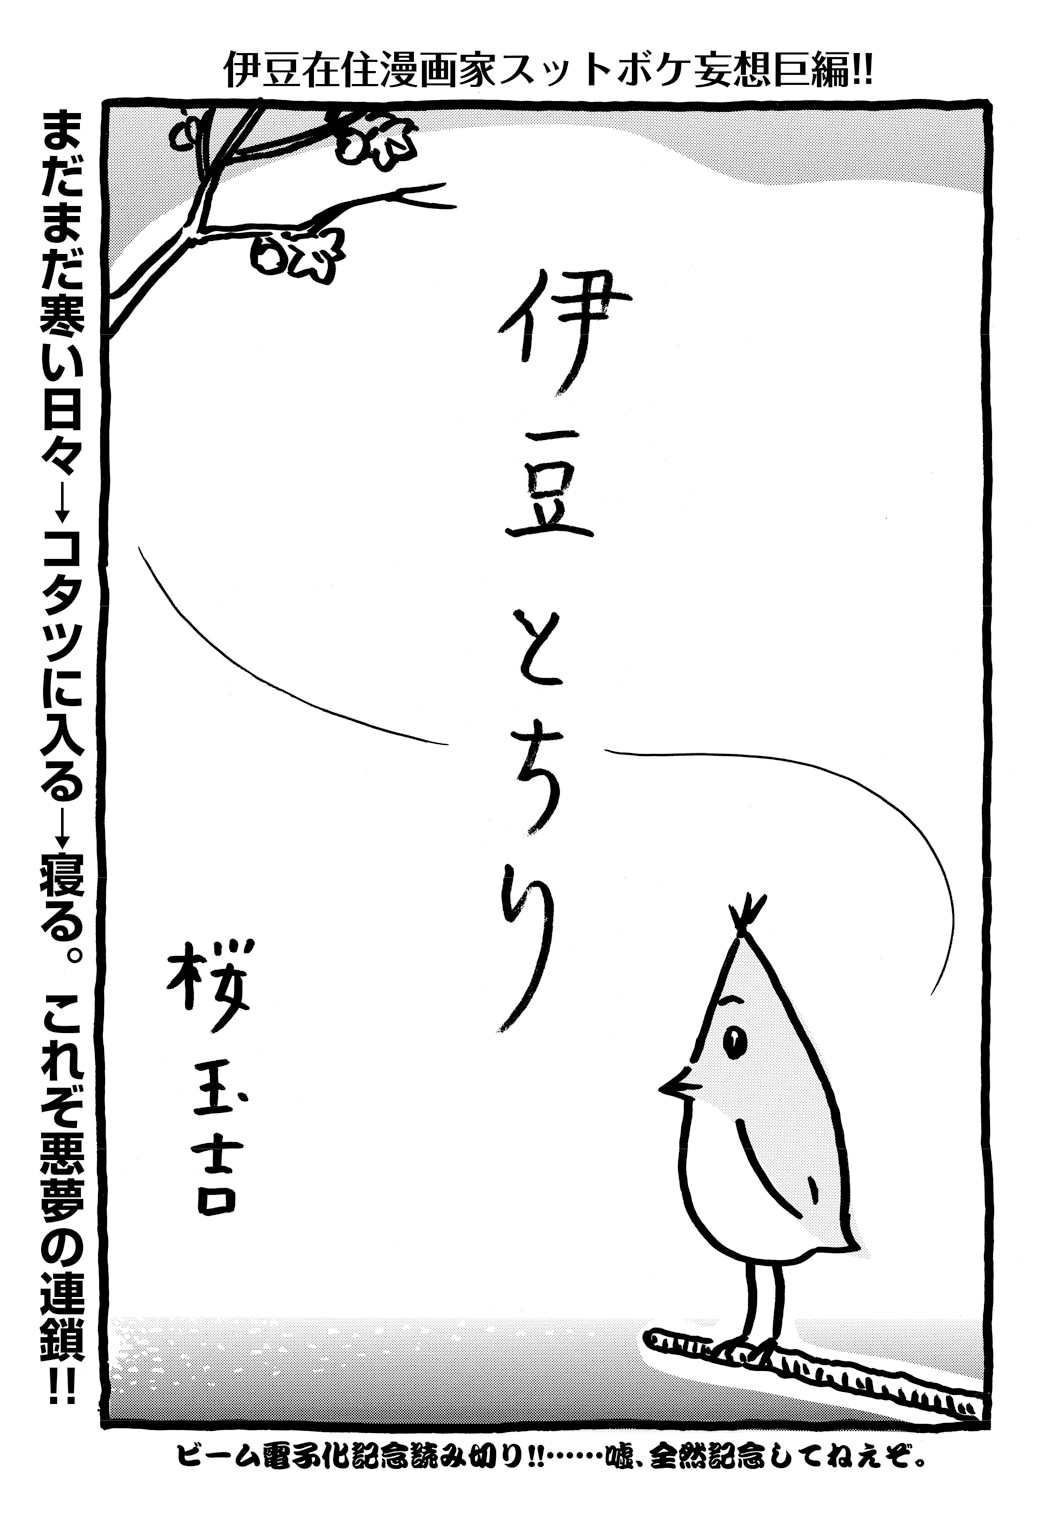 伊豆在住漫画家スットボケ妄想巨編!!
伊豆とちり
桜玉吉
まだまだ寒い日々→コタツに入る→寝る。これぞ悪夢の連鎖!!
ビーム電子化記念読み切り!!……嘘、全然記念してねえぞ。